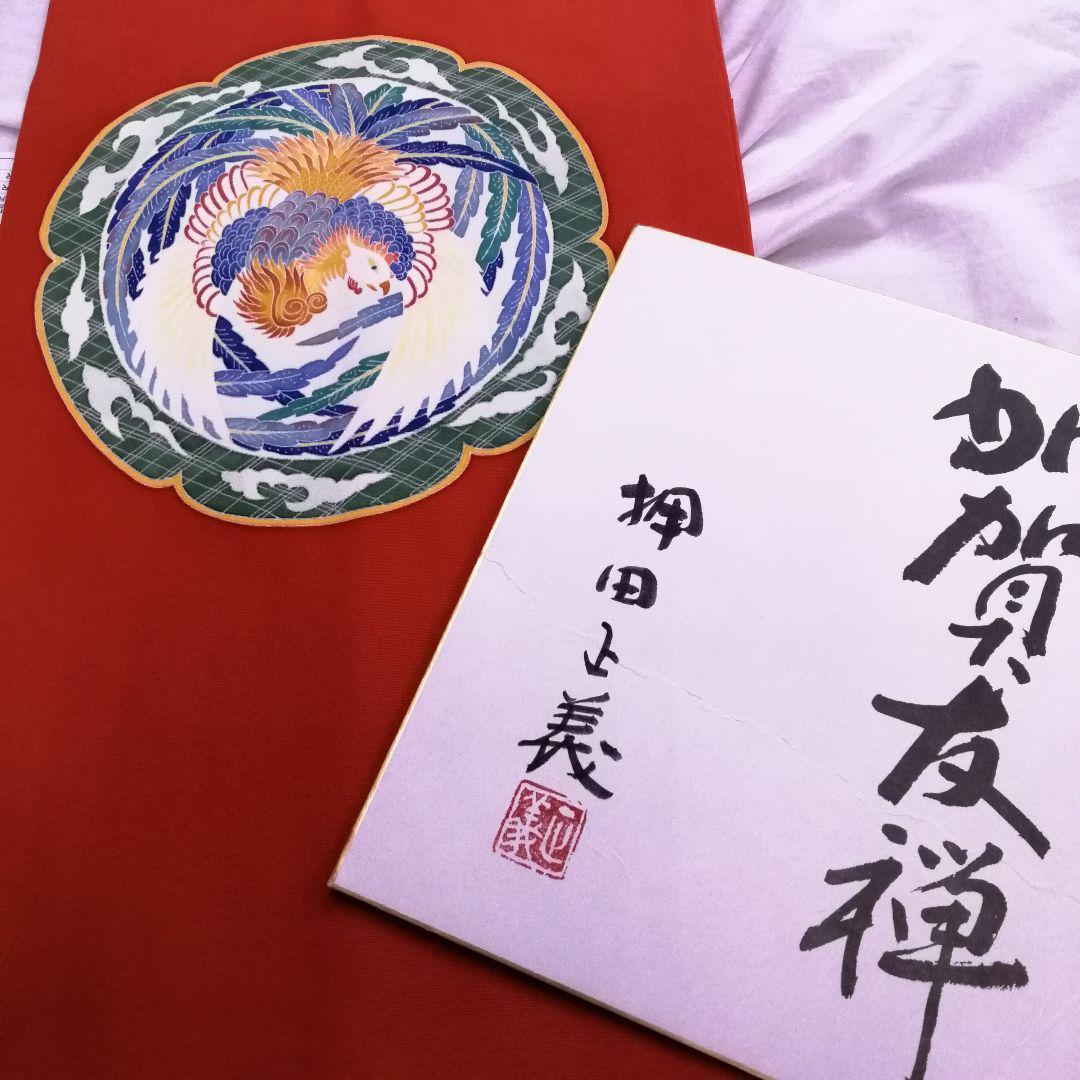 加賀友禅
押田正義